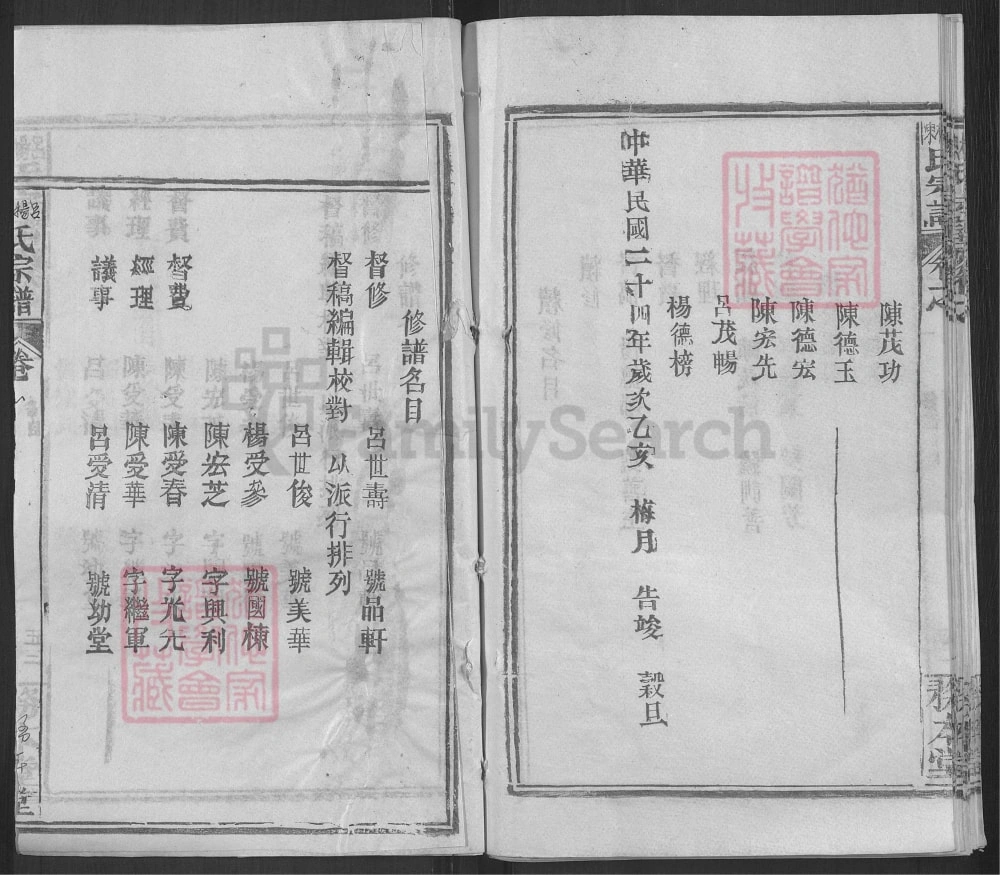 陳茂功
陳德玉
陳德宏
陳宏先
呂茂暢
楊德榜
中華民國二十四年歲次乙亥 梅月 告竣 穀旦
修譜名目
督修 呂世壽 號品軒
督稿編輯校對 以派行排列
呂世俊 號美華
楊受參 號國棟
陳宏芝 字興利
督費 陳受春 字光先
經理 陳受華 字繼軍
議事 呂受清 號幼堂
呂楊氏宗譜 卷
堂
氏宗譜
猶他家譜學會收藏
猶他家譜學會收藏
FamilySearch